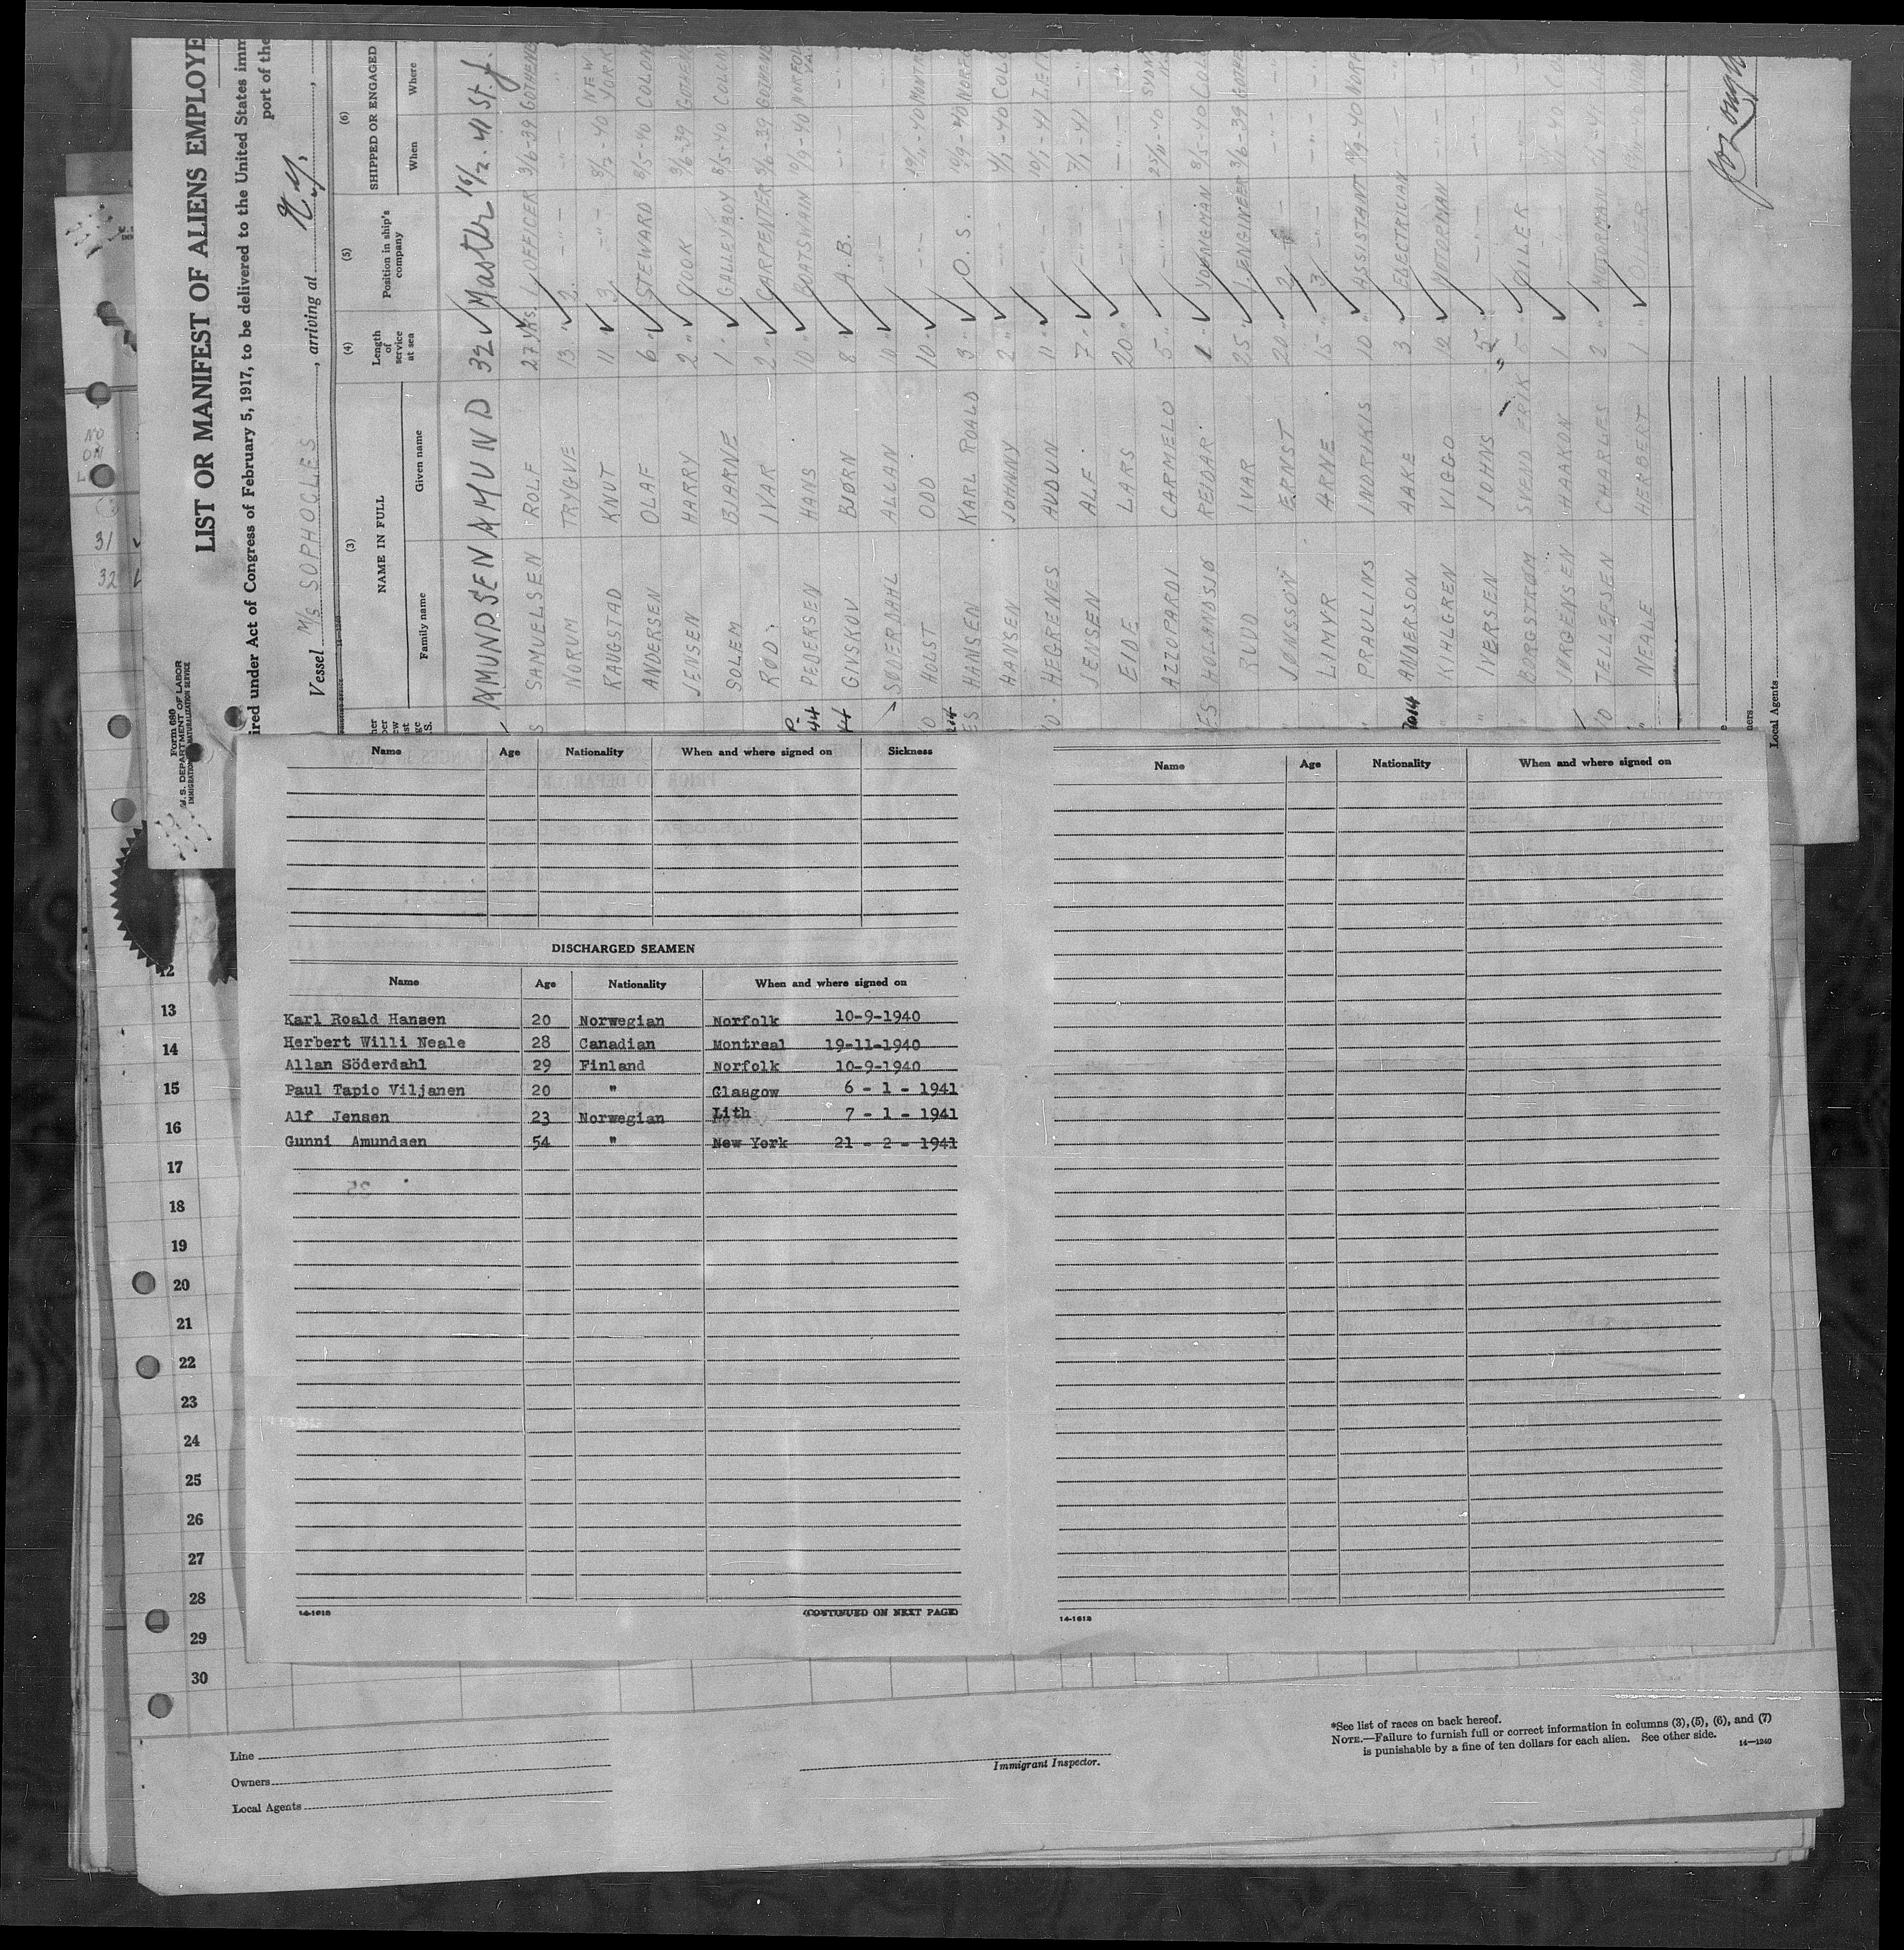 LIST OR MANIFEST OF ALIENS EMPLOYE
ired under Act of Congress of February 5, 1917, to be delivered to the United States imm
port of the
Vessel M/S SOPHOCLES, arriving at N.Y.,
Form 680
U.S. DEPARTMENT OF LABOR
IMMIGRATION NATURALIZATION SERVICE
(3) (4) (5) (6)
NAME IN FULL Length of service at sea Position in ship's company SHIPPED OR ENGAGED
Family name Given name When Where
AMUNDSEN AMUND 32 Master 16/2-41
SAMUELSEN ROLF 27 YRS. 1 OFFICER 3/6-39 GOTHENB
NORUM TRYGVE 13 " 2. -"- -"- "
KAUGSTAD KNUT 11 " 3 -"- 8/2-40 NEW YORK
ANDERSEN OLAF 6 " STEWARD 8/5-40 COLON
JENSEN HARRY 2 " COOK 3/6-39 GOTHEN
SOLEM BJARNE 1 " GALLEYBOY 8/5-40 COLON
RØD. IVAR 2 " CARPENTER 3/6-39 GOTHEND
PEDERSEN HANS 10 " BOATSWAIN 10/9-40 NORFOL VA.
GIVSKOV BJØRN 8 " A.B. -"- -"-
SØDERDAHL ALLAN 10 " -"- -"-
HOLST ODD 10 " -"- 19/11-40 MONTR
HANSEN KARL ROALD 3 " O.S. 10/9-40 NORFO
HANSEN JOHNNY 2 " -"- COLO
HEGRENES AUDUN 11 " -"- 10/1-41 LEIT
JENSEN ALF. 7 " -"- 7/1-41 -"-
EIDE LARS 20 " -"- -"- -"-
AZZOPARDI CARMELO 5 " -"- 25/11-40
HOLANDSJØ REIDAR 1 " YOUNGMAN 8/5-40 COL
RUUD IVAR 25 " 1. ENGINEER 3/6-39 GOTHE
JØNSSON ERNST 20 " 2 -"- -"-
LIMYR ARNE 15 " 3 -"- -"-
PRAULINS INDRIKIS 10 " ASSISTANT 10/9-40 NORF
ANDERSON AAKE 3 " ELECTRICIAN -"-
KIHLGREN VIGGO 12 " MOTORMAN -"-
IVERSEN JOHNS 5 " -"- -"-
BORGSTRØM SVEND ERIK 5 " OILER -"-
JØRGENSEN HAAKON 1 " -"-
TELLEFSEN CHARLES 2 " MOTORMAN
NEALE HERBERT 1 " OILER
Local Agents
Name Age Nationality When and where signed on Sickness
DISCHARGED SEAMEN
Name Age Nationality When and where signed on
Karl Roald Hansen 20 Norwegian Norfolk 10-9-1940
Herbert Willi Neale 28 Canadian Montreal 19-11-1940
Allan Söderdahl 29 Finland Norfolk 10-9-1940
Paul Tapio Viljanen 20 " Glasgow 6 - 1 - 1941
Alf Jensen 23 Norwegian Lith 7 - 1 - 1941
Gunni Amundsen 54 " New York 21 - 2 - 1941
14-1613
(CONTINUED ON NEXT PAGE)
Name Age Nationality When and where signed on
14-1613
31
32
12
13
14
15
16
17
18
19
20
21
22
23
24
25
26
27
28
29
30
Line
Owners
Local Agents
Immigrant Inspector.
*See list of races on back hereof.
NOTE.—Failure to furnish full or correct information in columns (3), (5), (6), and (7)
is punishable by a fine of ten dollars for each alien. See other side.
14—1240